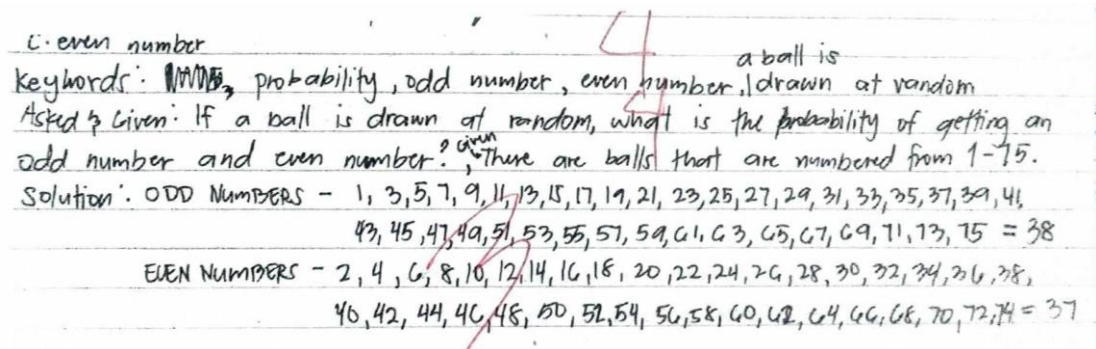 i. even number
Keywords: probability, odd number, even number, a ball is drawn at random
Asked & Given: If a ball is drawn at random, what is the probability of getting an
odd number and even number? Given There are balls that are numbered from 1-75.
Solution: ODD NUMBERS - 1, 3, 5, 7, 9, 11, 13, 15, 17, 19, 21, 23, 25, 27, 29, 31, 33, 35, 37, 39, 41,
43, 45, 47, 49, 51, 53, 55, 57, 59, 61, 63, 65, 67, 69, 71, 73, 75 = 38
EVEN NUMBERS - 2, 4, 6, 8, 10, 12, 14, 16, 18, 20, 22, 24, 26, 28, 30, 32, 34, 36, 38,
40, 42, 44, 46, 48, 50, 52, 54, 56, 58, 60, 62, 64, 66, 68, 70, 72, 74 = 37